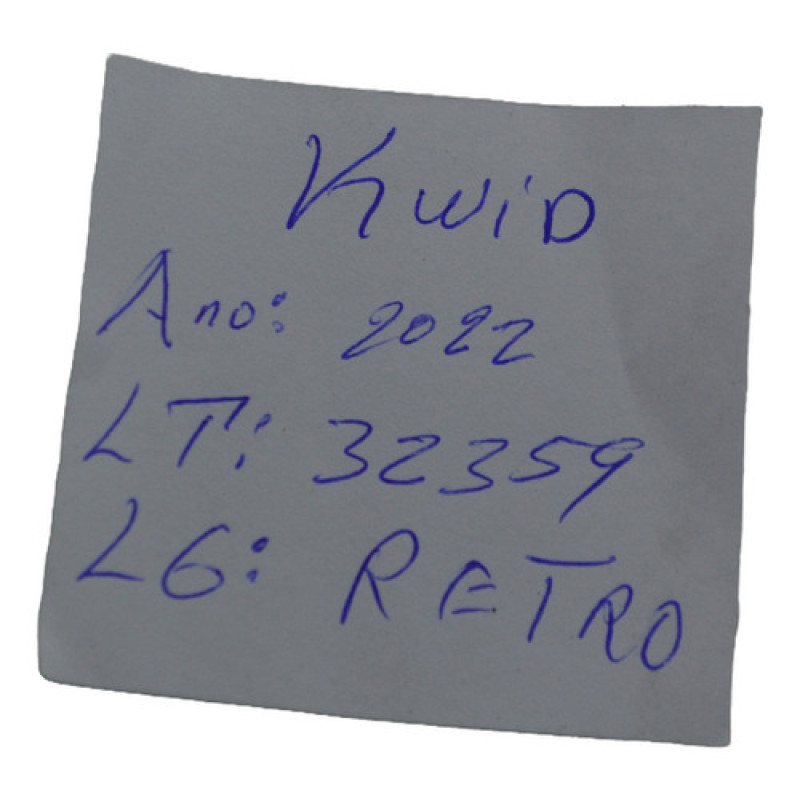 Kwid
Ano: 2022
LT: 32359
LG: RETRO